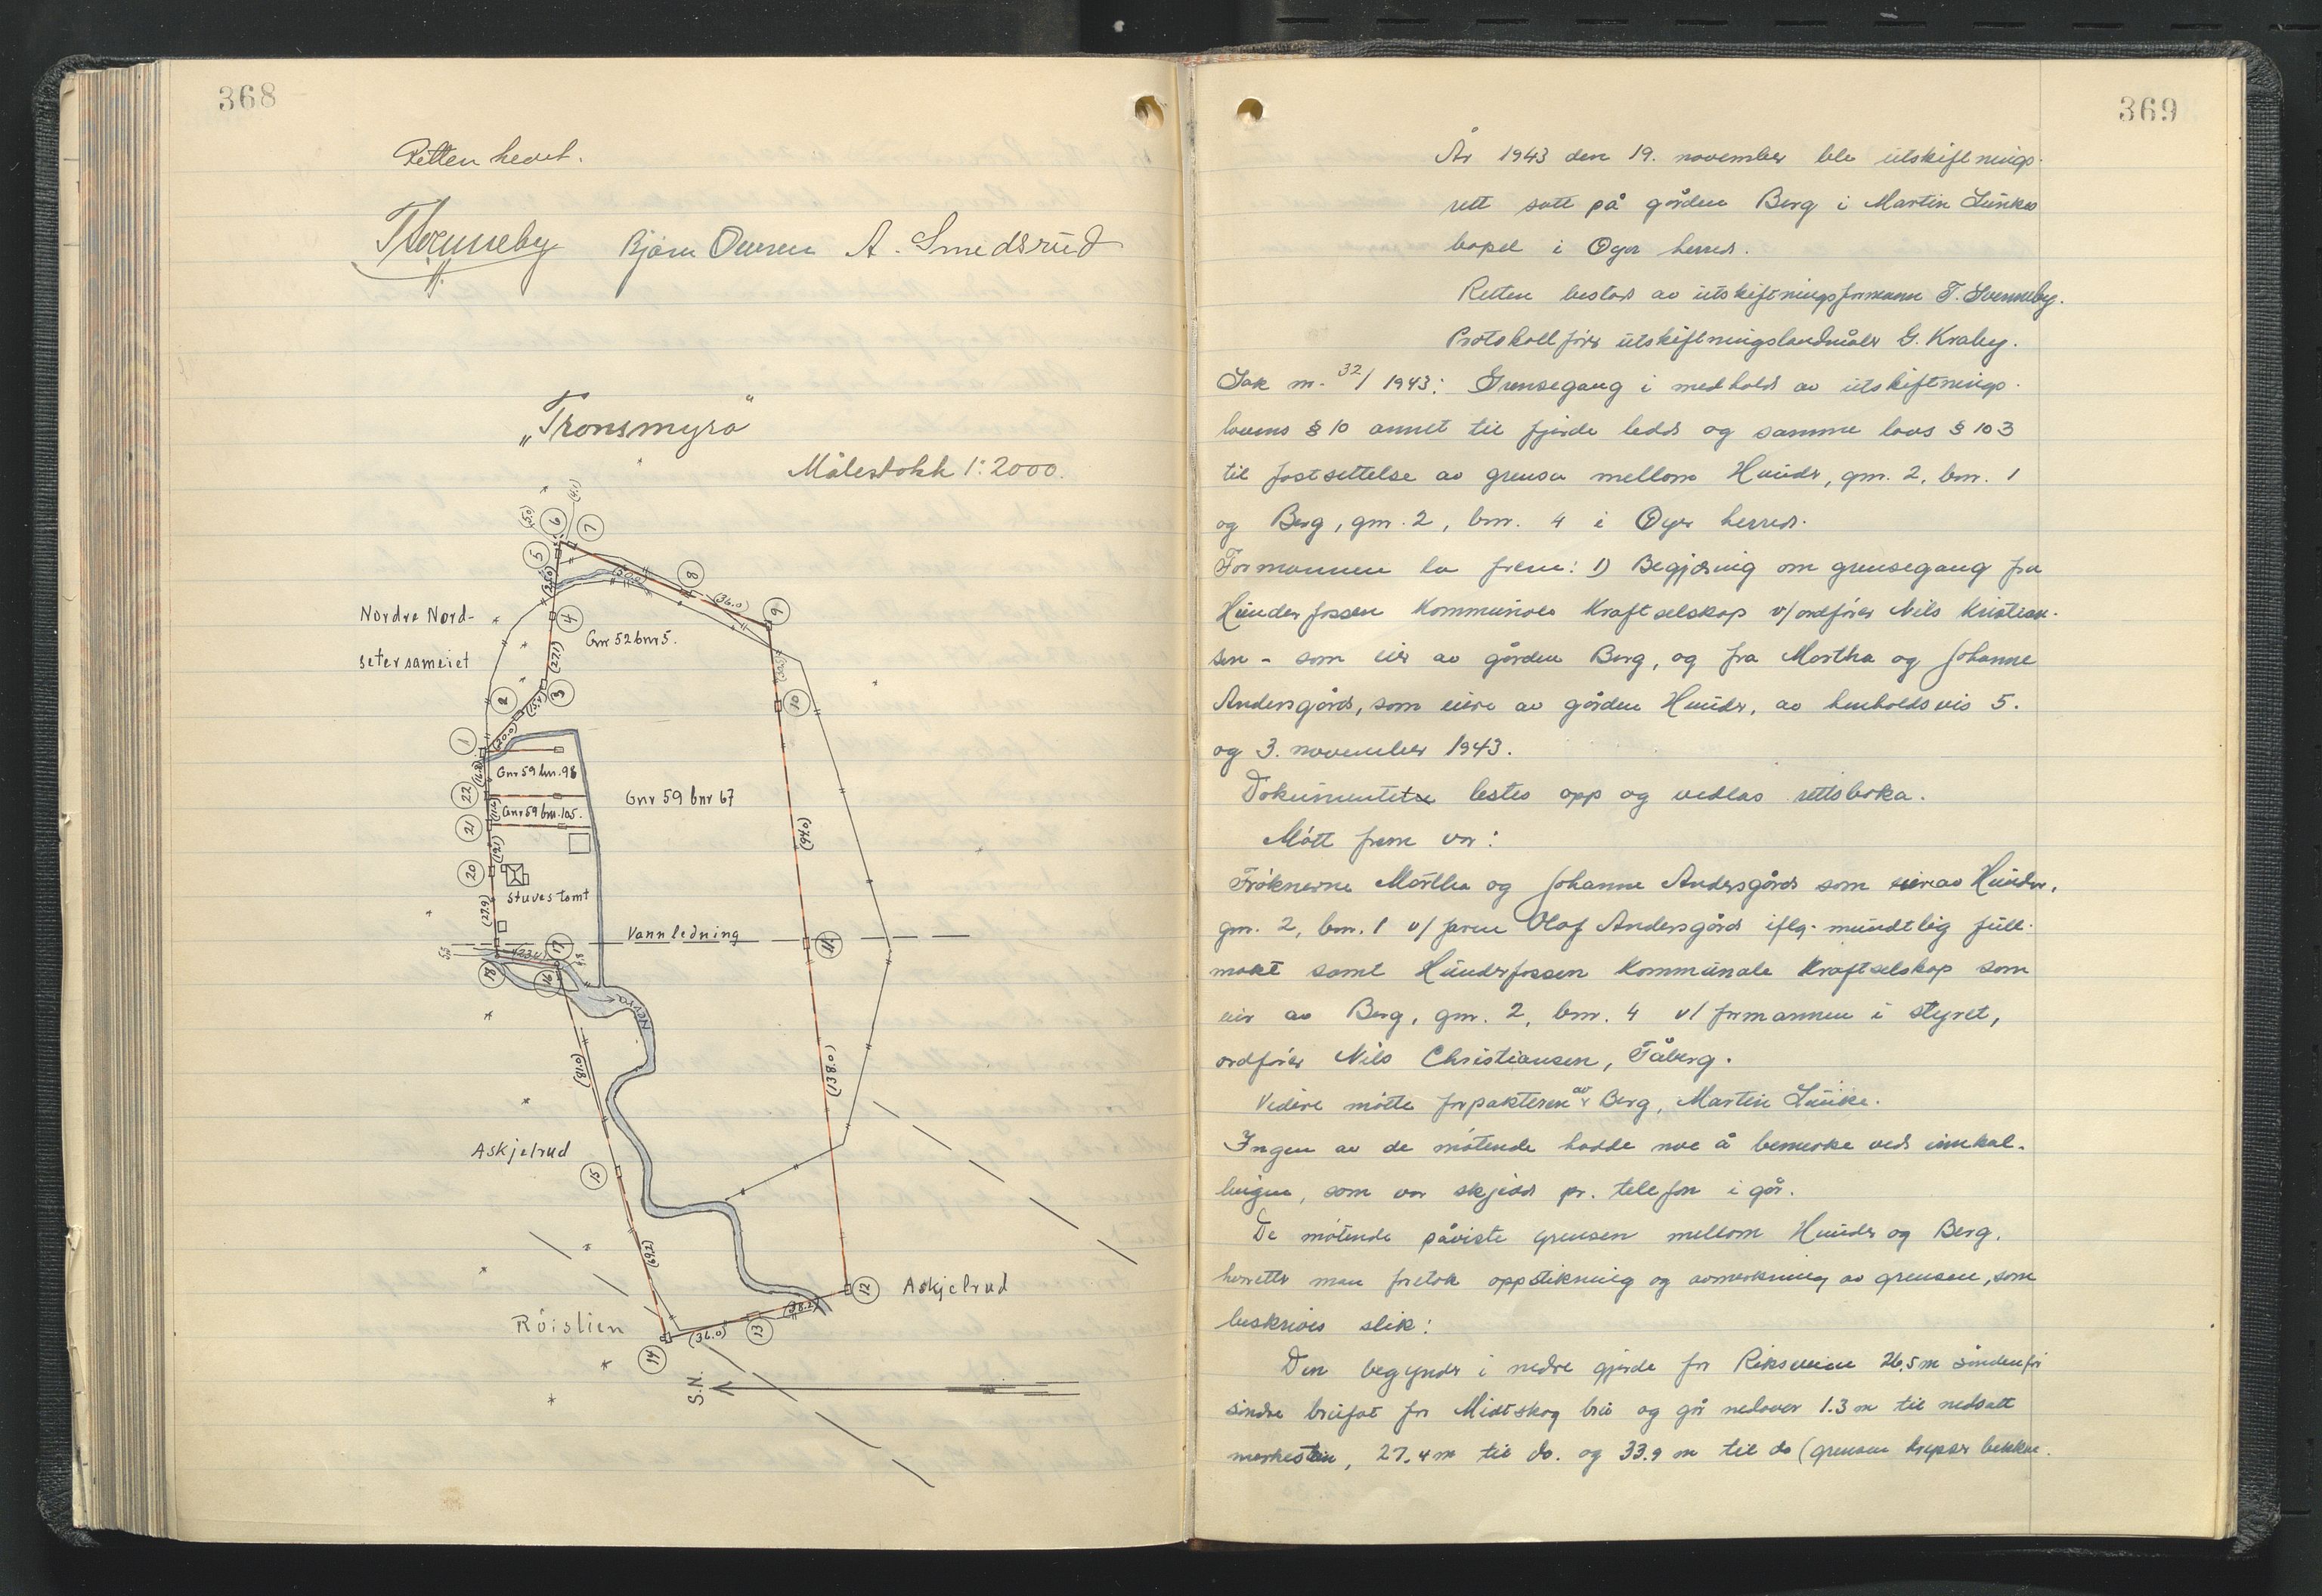 368
Retten hevet.
T. Svenneby Bjørn Owren A. Smedsrud
"Tronsmyra"
Målestokk 1:2000.
(5.0) (4.1)
6 7
5
(25.0) (50.0) 8
(36.0) 9
Nordre Nord-
4
Gnr 52 bnr 5.
setersameiet
(27.1)
3
2 (15.4)
10
1 (20.0)
Gnr 59 bnr. 98
22
Gnr 59 bnr 67
Gnr 59 bnr. 105.
21
(94.0)
20
Stuves tomt
(27.9)
Vannledning
17 11
18 16
Nevra
(81.0)
(138.0)
Askjelrud
15
(69.2)
12 Askjelrud
(38.2)
Röislien
(36.0) 13
14
S.N.
369
År 1943 den 19. november ble utskiftnings-
rett satt på gården Berg i Martin Lunkes
bopel i Øyer herred.
Retten bestod av utskiftningsformann T. Svenneby.
Protokollfører utskiftningslandmåler G. Kraby.
Sak nr. 32/1943: Grensegang i medhold av utskiftnings-
lovens § 10 annet til fjerde ledd og samme lovs § 103
til fastsettelse av grensen mellom Hunder, gnr. 2, bnr. 1
og Berg, gnr. 2, bnr. 4 i Øyer herred.
Formannen la frem: 1) Begjæring om grensegang fra
Hunderfossen Kommunale Kraftselskap v/ordfører Nils Kristian-
sen - som eier av gården Berg, og fra Martha og Johanne
Andersgård, som eiere av gården Hunder, av henholdsvis 5.
og 3. november 1943.
Dokumentene lestes opp og vedlas rettsboka.
Møtt frem var:
Frøknerne Martha og Johanne Andersgård som eiere av Hunder,
gnr. 2, bnr. 1 v/ faren Olaf Andersgård iflg. muntlig full-
makt samt Hunderfossen Kommunale Kraftselskap som
eier av Berg, gnr. 2, bnr. 4 v/ formannen i styret,
ordfører Nils Christiansen, Fåberg.
Videre møtte forpakteren av Berg, Martin Lunke.
Ingen av de møtende hadde noe å bemerke ved innkal-
lingen, som var skjedd pr. telefon i går.
De møtende påviste grensen mellom Hunder og Berg,
hvoretter man foretok oppstikning og avmerkning av grensen, som
beskrives slik:
Den begynder i nedre gjerde for Riksveien 26,5 m söndenfor
söndre brufot for Midtskog bru og går nedover 1.3 m til nedsatt
merkestein, 27.4 m til do. og 33.9 m til do (grensen krysser bekken.